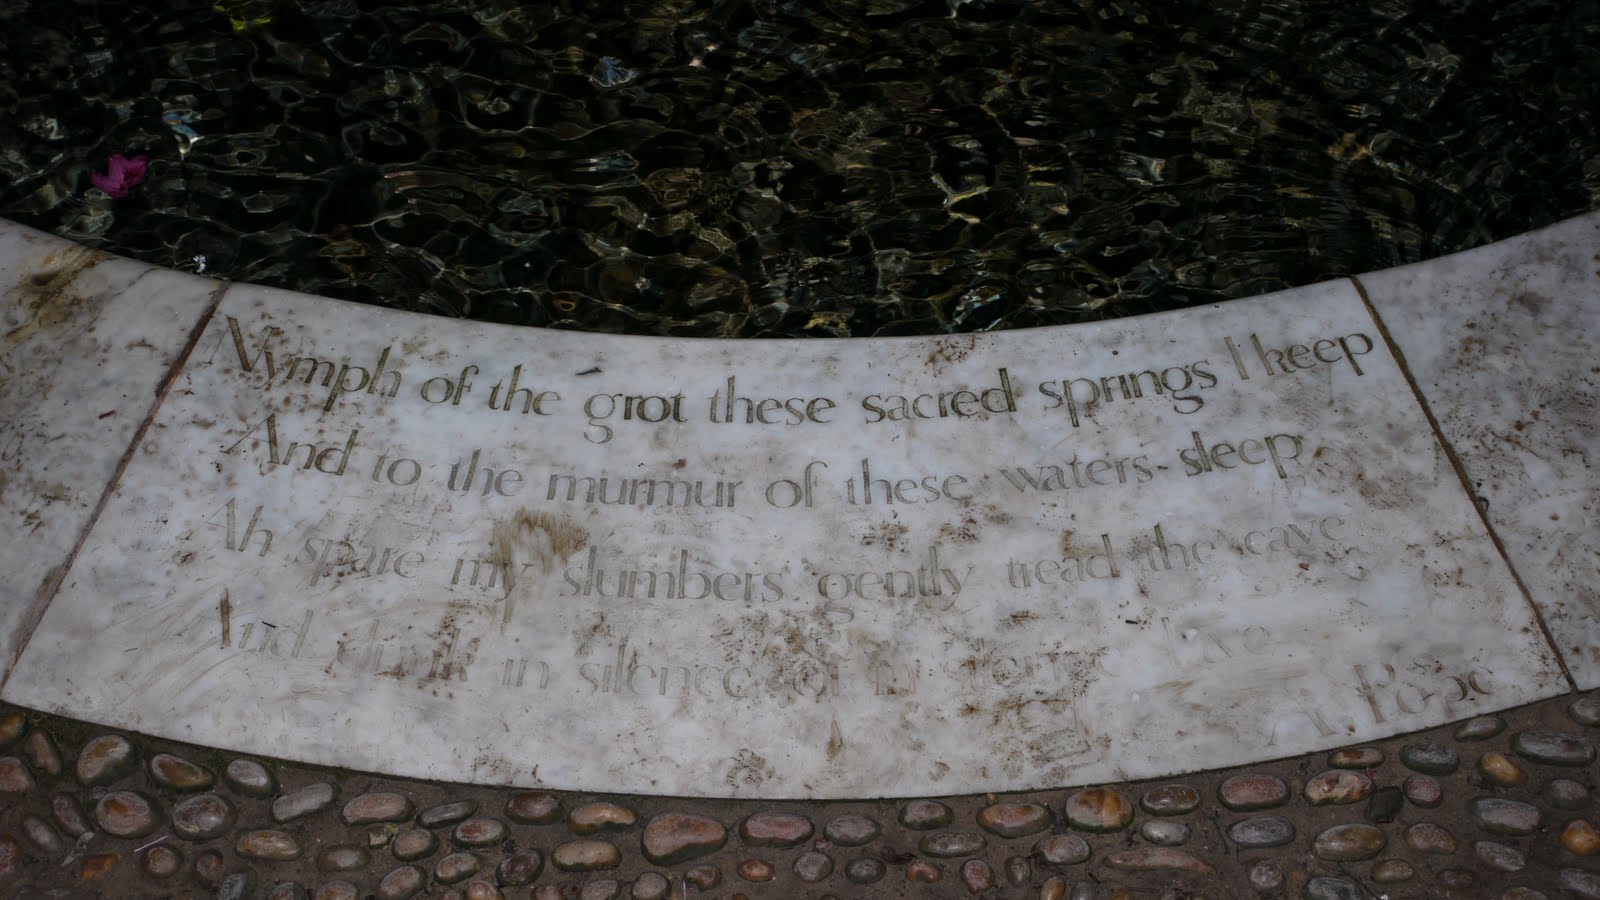 Nymph of the grot these sacred springs I keep
And to the murmur of these waters sleep
Ah spare my slumbers gently tread the cave
And drink in silence or in silence lave
A. Pope